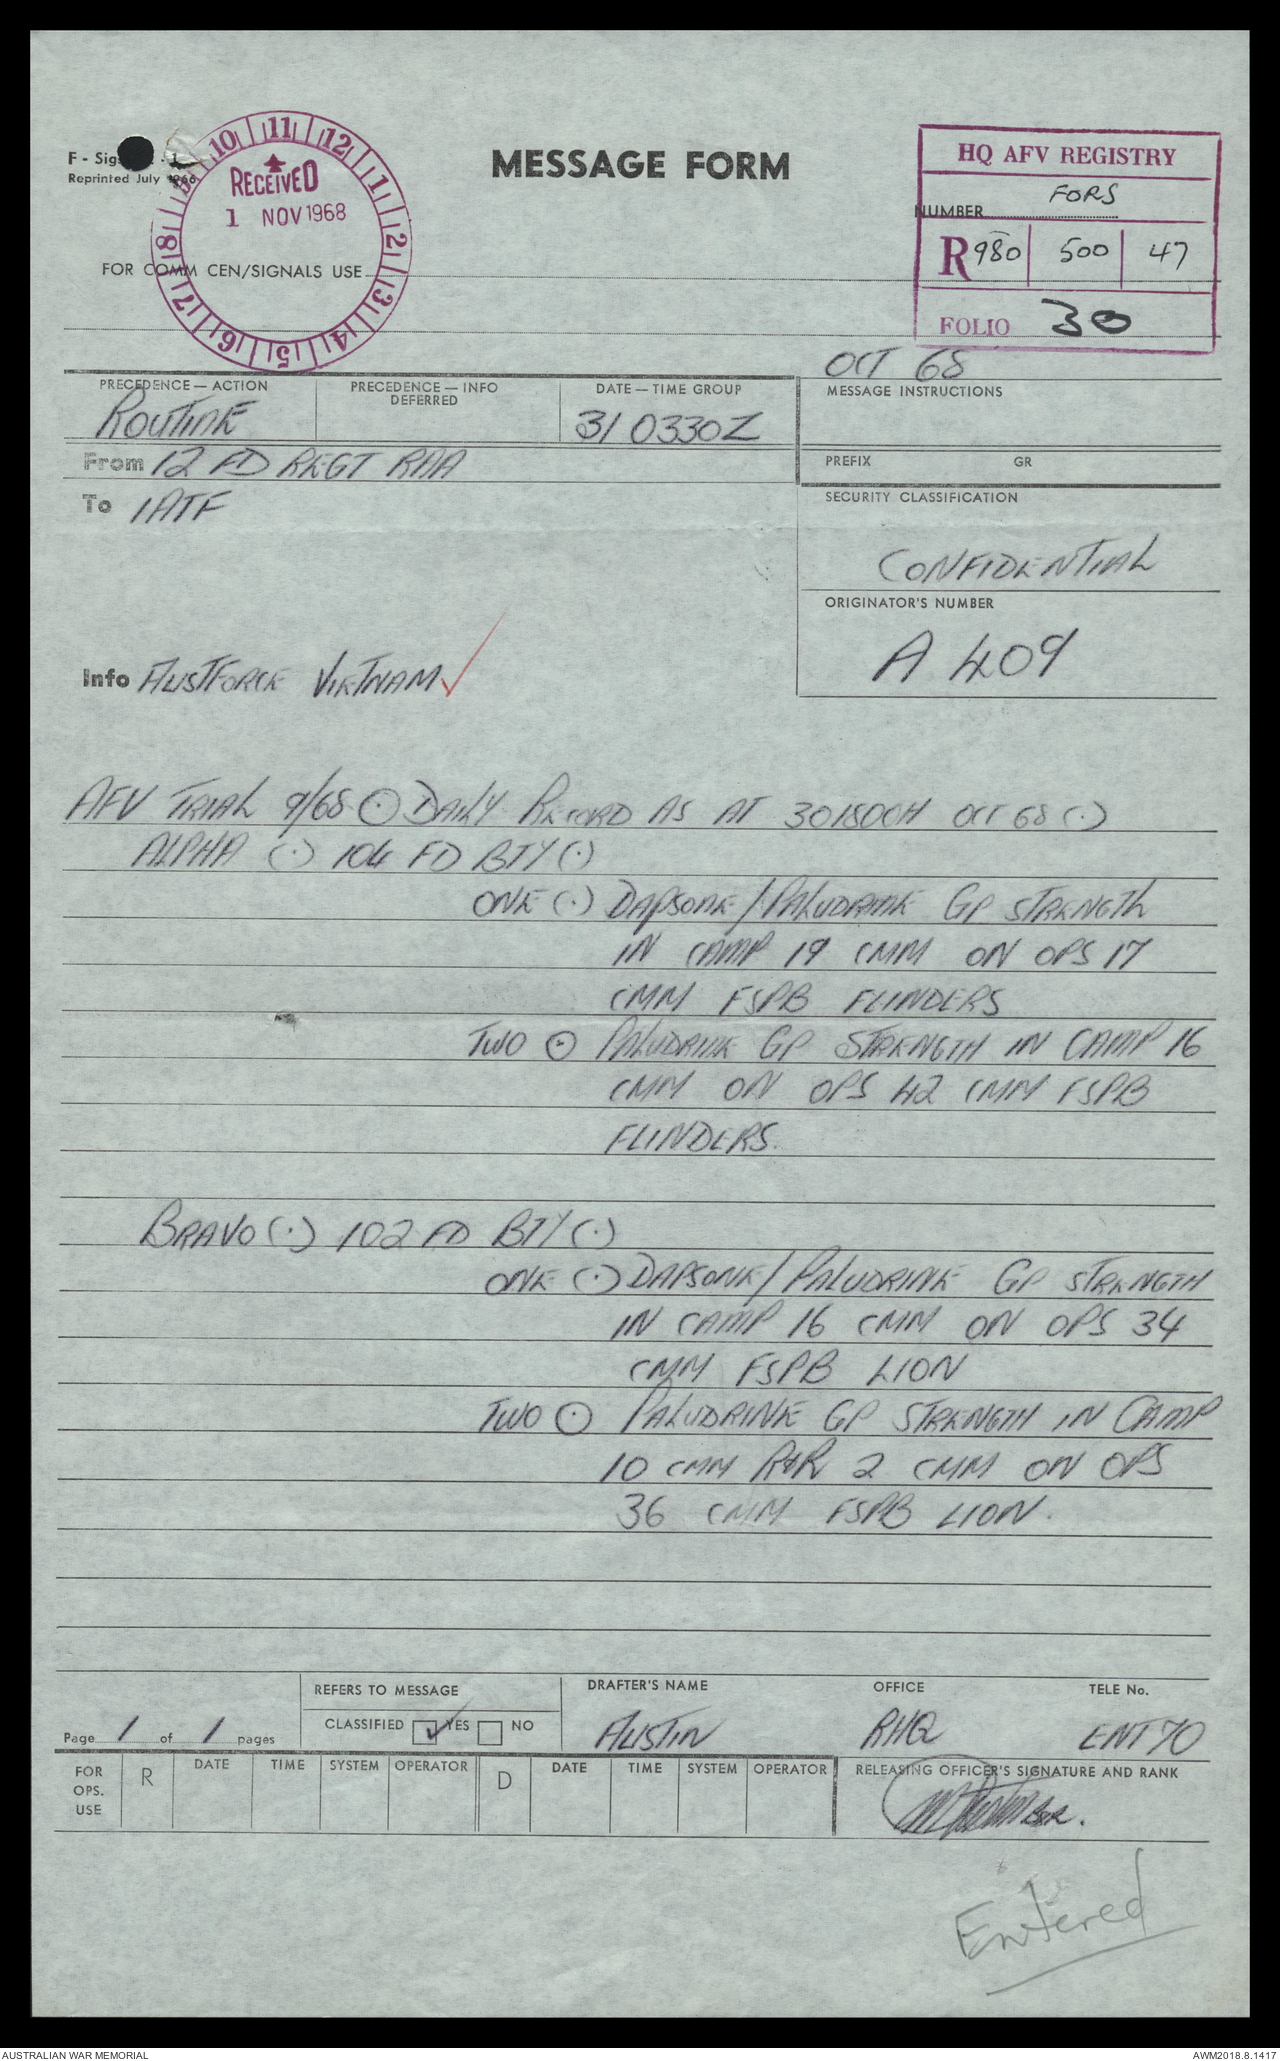 F - Sig
Reprinted July 1966
10 11 12 1 2 3 4 5 6 7 8
RECEIVED
1 NOV 1968
MESSAGE FORM
HQ AFV REGISTRY
FORS
NUMBER
R 980 500 47
FOLIO 30
FOR COMM CEN/SIGNALS USE
OCT 68
PRECEDENCE — ACTION
ROUTINE
PRECEDENCE — INFO
DEFERRED
DATE — TIME GROUP
310330Z
MESSAGE INSTRUCTIONS
PREFIX GR
From 12 FD REGT RAA
To 1ATF
SECURITY CLASSIFICATION
CONFIDENTIAL
ORIGINATOR'S NUMBER
A 409
Info AUSTFORCE VIETNAM ✓
AFV TRIAL 9/68 (.) DAILY RECORD AS AT 301800H OCT 68 (.)
ALPHA (.) 104 FD BTY (.)
ONE (.) DAPSONE/PALUDRINE GP STRENGTH
IN CAMP 19 CMM ON OPS 17
CMM FSPB FLINDERS
TWO (.) PALUDRINE GP STRENGTH IN CAMP 16
CMM ON OPS 42 CMM FSPB
FLINDERS.
BRAVO (.) 102 FD BTY (.)
ONE (.) DAPSONE/PALUDRINE GP STRENGTH
IN CAMP 16 CMM ON OPS 34
CMM FSPB LION
TWO (.) PALUDRINE GP STRENGTH IN CAMP
10 CMM R&R 2 CMM ON OPS
36 CMM FSPB LION.
Page 1 of 1 pages
REFERS TO MESSAGE
CLASSIFIED ✓ YES NO
DRAFTER'S NAME
AUSTIN
OFFICE
RHQ
TELE No.
ENT 70
FOR OPS. USE
R DATE TIME SYSTEM OPERATOR
D DATE TIME SYSTEM OPERATOR
RELEASING OFFICER'S SIGNATURE AND RANK
Entered
AUSTRALIAN WAR MEMORIAL
AWM2018.8.1417